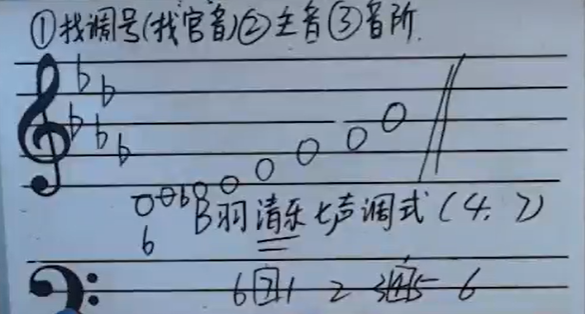 ①找调号(找宫音)②主音③音阶.
bB羽清乐七声调式(4、7)
6
6 7 1 2 3 4 5 6